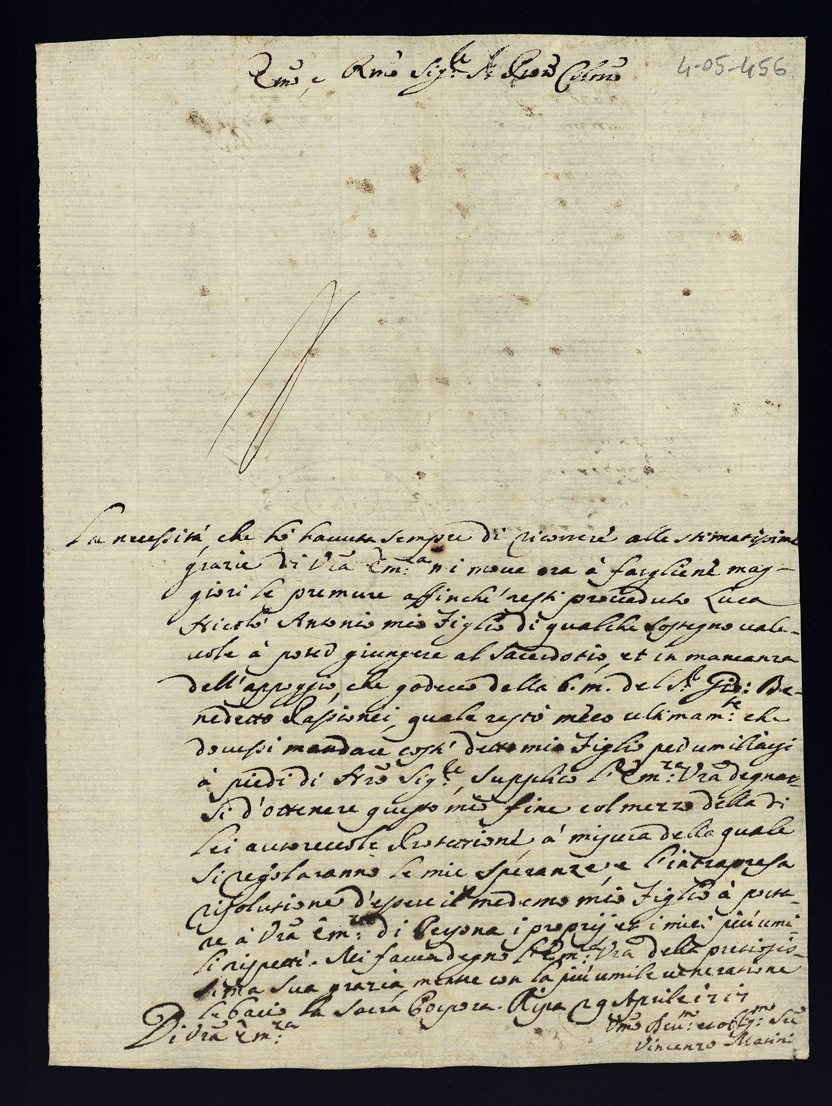 Em̃o, e Rm̃o Sig.re S.r Pron̄e Colm̃o
4-05-456
La necessità che hò havuta sempre di ricorrere alle stimatissime
grazie di Vr̃a Em.a mi move ora à fargliene mag-
giori le premure affinche resti proveduto Luca
Nicolò Antonio mio Figlio di qualche sostegno vale-
vole à poter giungere al Sacerdotio, et in mancanza
dell'appoggio, che godevo della b. m. del S.r Gio: Be-
nedetto Passionei, quale restò meco ultimam.te che
dovessi mandare costì detto mio Figlio per umiliarsi
à piedi di Nr̃o Sig.re, supplico l'Em.za Vr̃a degnar-
si d'ottenere questo mio fine col mezzo della di
lei autorevole Protettione, à misura della quale
si regolaranno le mie speranze, e l'intrapresa
risolutione d'essere il medemo mio Figlio à porta-
re à Vr̃a Em.za di Persona i proprij et i miei più umi-
li rispetti. Mi faccia degno l'Em.za Vr̃a della pretiosis-
sima sua grazia, mentre con la più umile veneratione
le bacio la Sacra Porpora. Ripa 29 Aprile
Di Vr̃a Em.za
Um̃o Div.mo et obblig.mo Ser.
Vincenzo Masini